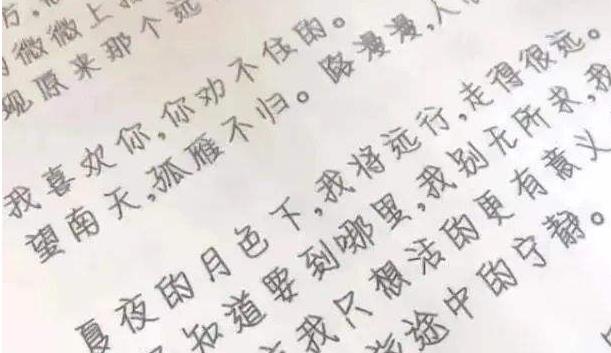 微微上
现原来那个远
我喜欢你,你劝不住的。路漫漫,人
望南天,孤雁不归。
夏夜的月色下,我将远行,走得很远。
知道要到哪里,我别无所求,我
我只想活的更有意义
旅途中的宁静。